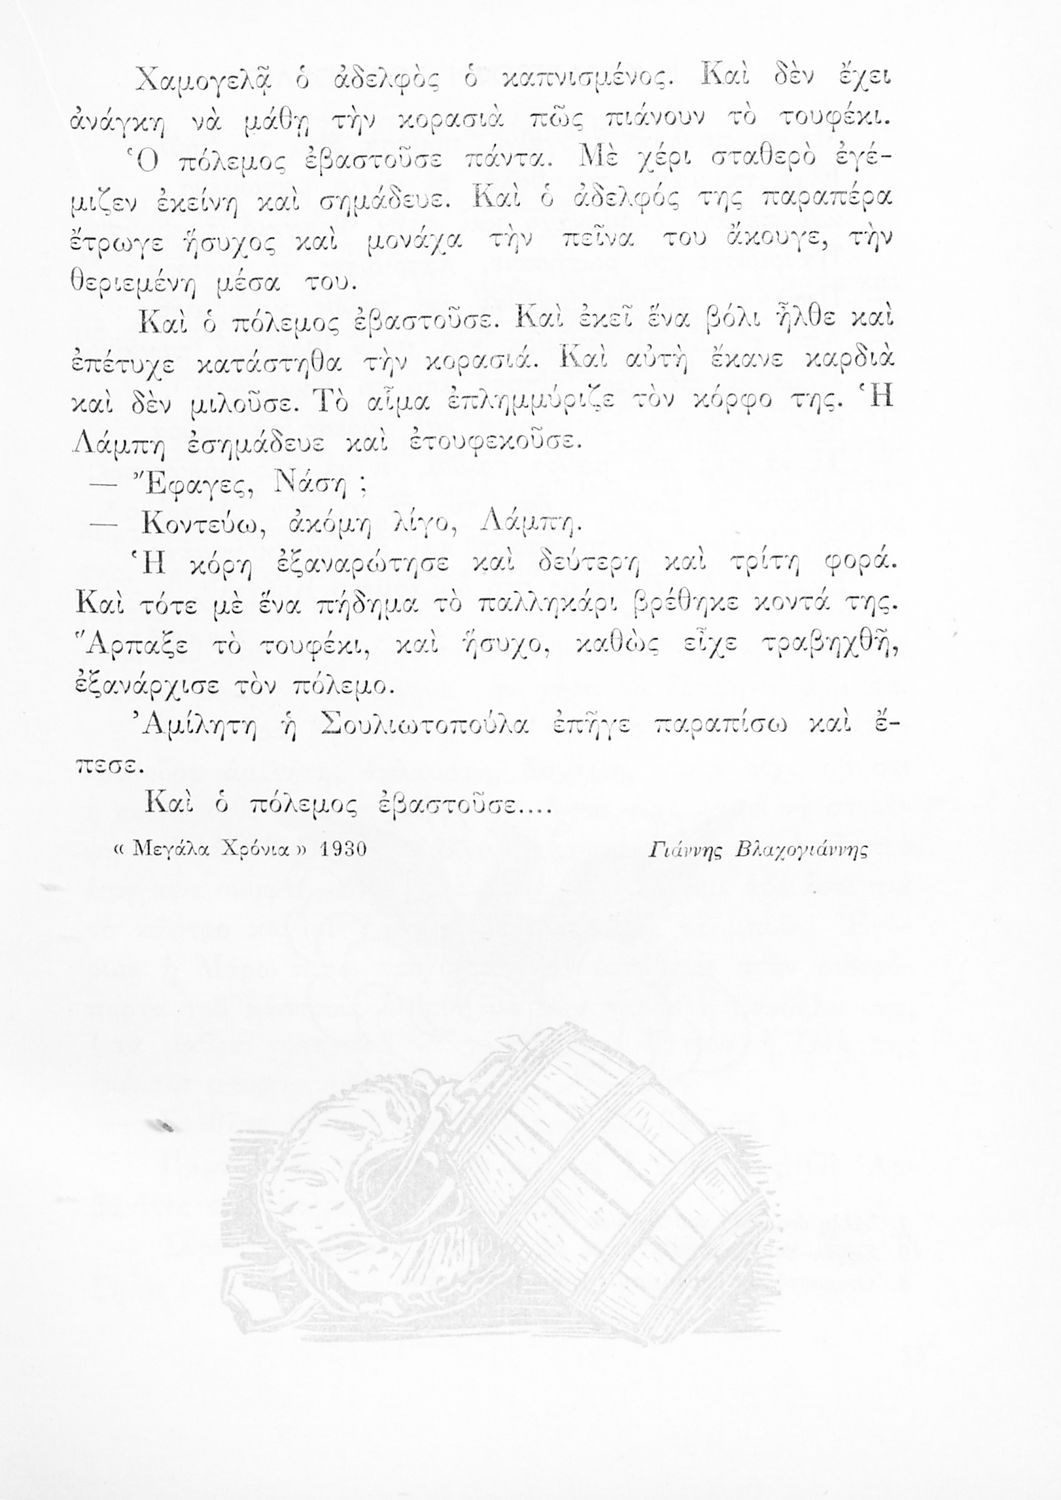 Χαμογελᾷ ὁ ἀδελφὸς ὁ καπνισμένος. Καὶ δὲν ἔχει
ἀνάγκη νὰ μάθῃ τὴν κορασιὰ πῶς πιάνουν τὸ τουφέκι.
Ὁ πόλεμος ἐβαστοῦσε πάντα. Μὲ χέρι σταθερὸ ἐγέ-
μιζεν ἐκείνη καὶ σημάδευε. Καὶ ὁ ἀδελφός της παραπέρα
ἔτρωγε ἥσυχος καὶ μονάχα τὴν πεῖνα του ἄκουγε, τὴν
θεριεμένη μέσα του.
Καὶ ὁ πόλεμος ἐβαστοῦσε. Καὶ ἐκεῖ ἕνα βόλι ἦλθε καὶ
ἐπέτυχε κατάστηθα τὴν κορασιά. Καὶ αὐτὴ ἔκανε καρδιὰ
καὶ δὲν μιλοῦσε. Τὸ αἷμα ἐπλημμύριζε τὸν κόρφο της. Ἡ
Λάμπη ἐσημάδευε καὶ ἐτουφεκοῦσε.
— Ἔφαγες, Νάση ;
— Κοντεύω, ἀκόμη λίγο, Λάμπη.
Ἡ κόρη ἐξαναρώτησε καὶ δεύτερη καὶ τρίτη φορά.
Καὶ τότε μὲ ἕνα πήδημα τὸ παλληκάρι βρέθηκε κοντά της.
Ἅρπαξε τὸ τουφέκι, καὶ ἥσυχο, καθὼς εἶχε τραβηχθῆ,
ἐξανάρχισε τὸν πόλεμο.
Ἀμίλητη ἡ Σουλιωτοπούλα ἐπῆγε παραπίσω καὶ ἔ-
πεσε.
Καὶ ὁ πόλεμος ἐβαστοῦσε....
« Μεγάλα Χρόνια » 1930 Γιάννης Βλαχογιάννης